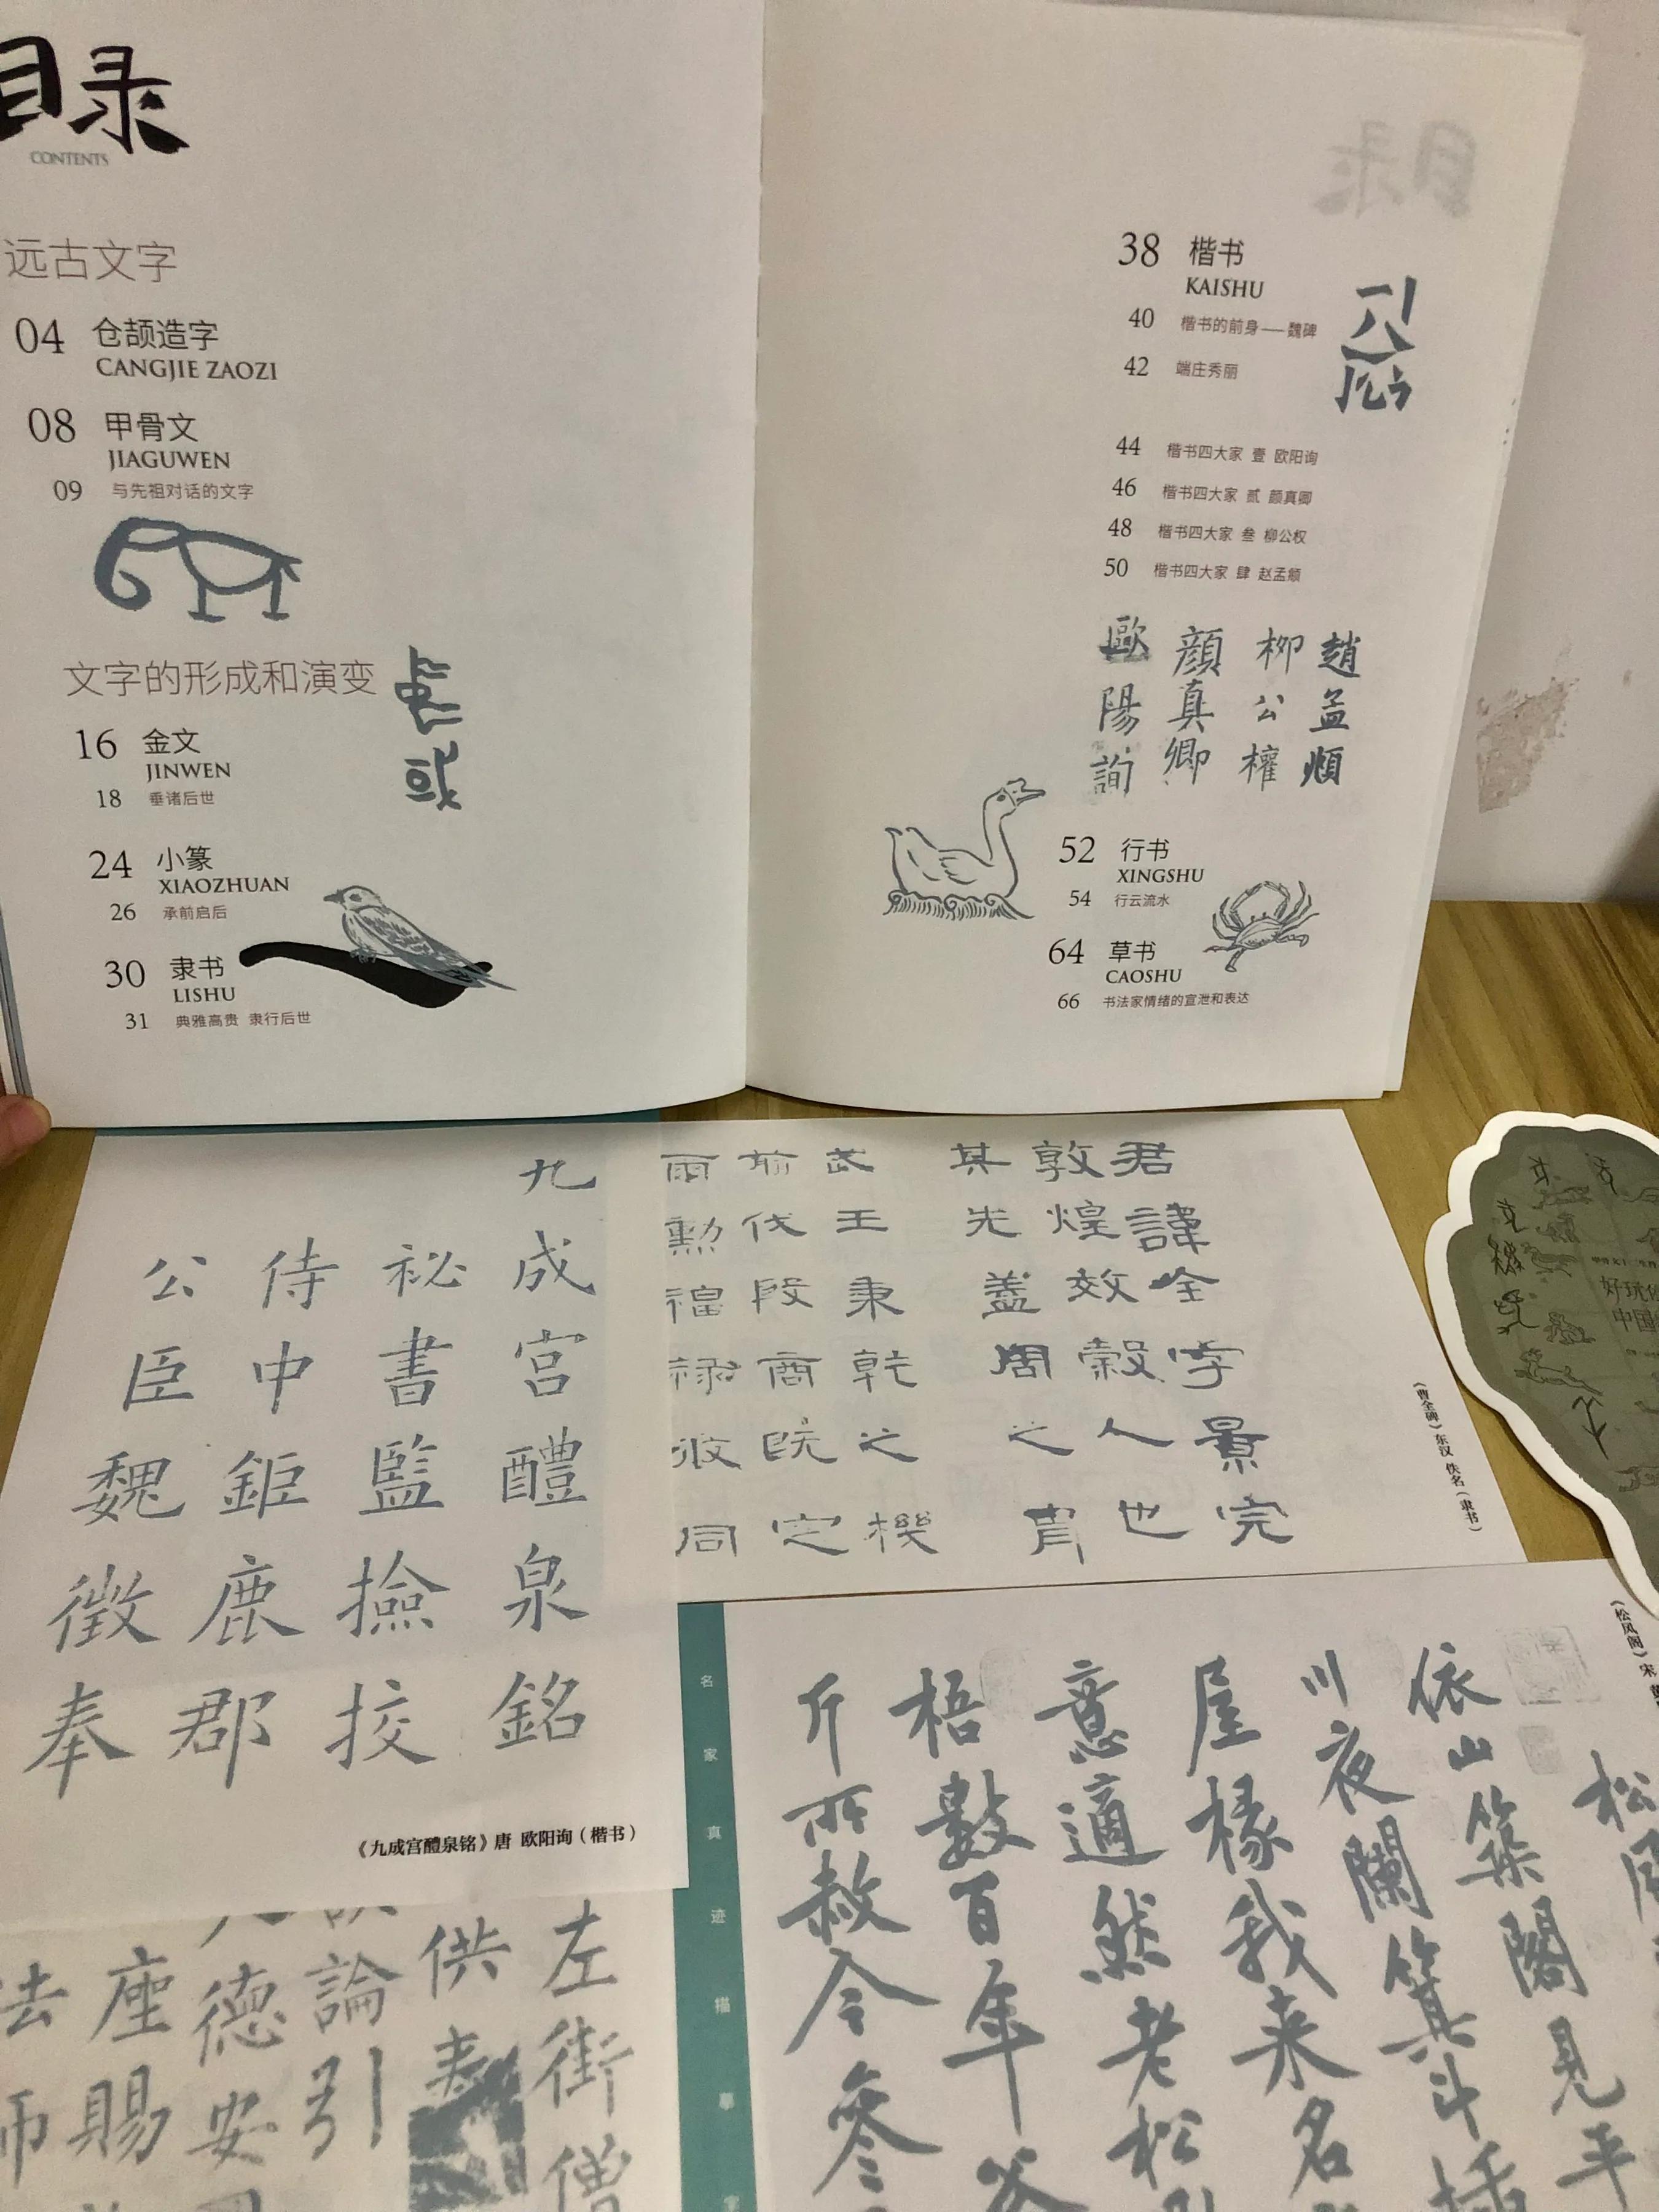 目录
CONTENTS
远古文字
04 仓颉造字
CANGJIE ZAOZI
08 甲骨文
JIAGUWEN
09 与先祖对话的文字
文字的形成和演变
16 金文
JINWEN
18 垂诸后世
24 小篆
XIAOZHUAN
26 承前启后
30 隶书
LISHU
31 典雅高贵 隶行后世
38 楷书
KAISHU
40 楷书的前身——魏碑
42 端庄秀丽
44 楷书四大家 壹 欧阳询
46 楷书四大家 贰 颜真卿
48 楷书四大家 叁 柳公权
50 楷书四大家 肆 赵孟頫
歐陽詢
顔真卿
柳公權
趙孟頫
52 行书
XINGSHU
54 行云流水
64 草书
CAOSHU
66 书法家情绪的宣泄和表达
九成宮醴泉銘
祕書監撿挍
侍中鉅鹿郡
公臣魏徵奉
《九成宫醴泉铭》唐 欧阳询（楷书）
君諱全字景完
敦煌效穀人也
其先蓋周之胄
武王秉乾之機
翦伐殷商既定
爾勲福禄攸同
《曹全碑》东汉 佚名（隶书）
《松风阁》宋
松風
依山築閣見平
川夜闌箕斗插
屋椽我来名
意適然老松
梧數百年
斤所赦今参
名家真迹描摹
左街僧
供奉
論引
德安
座賜
法師
好玩
中国